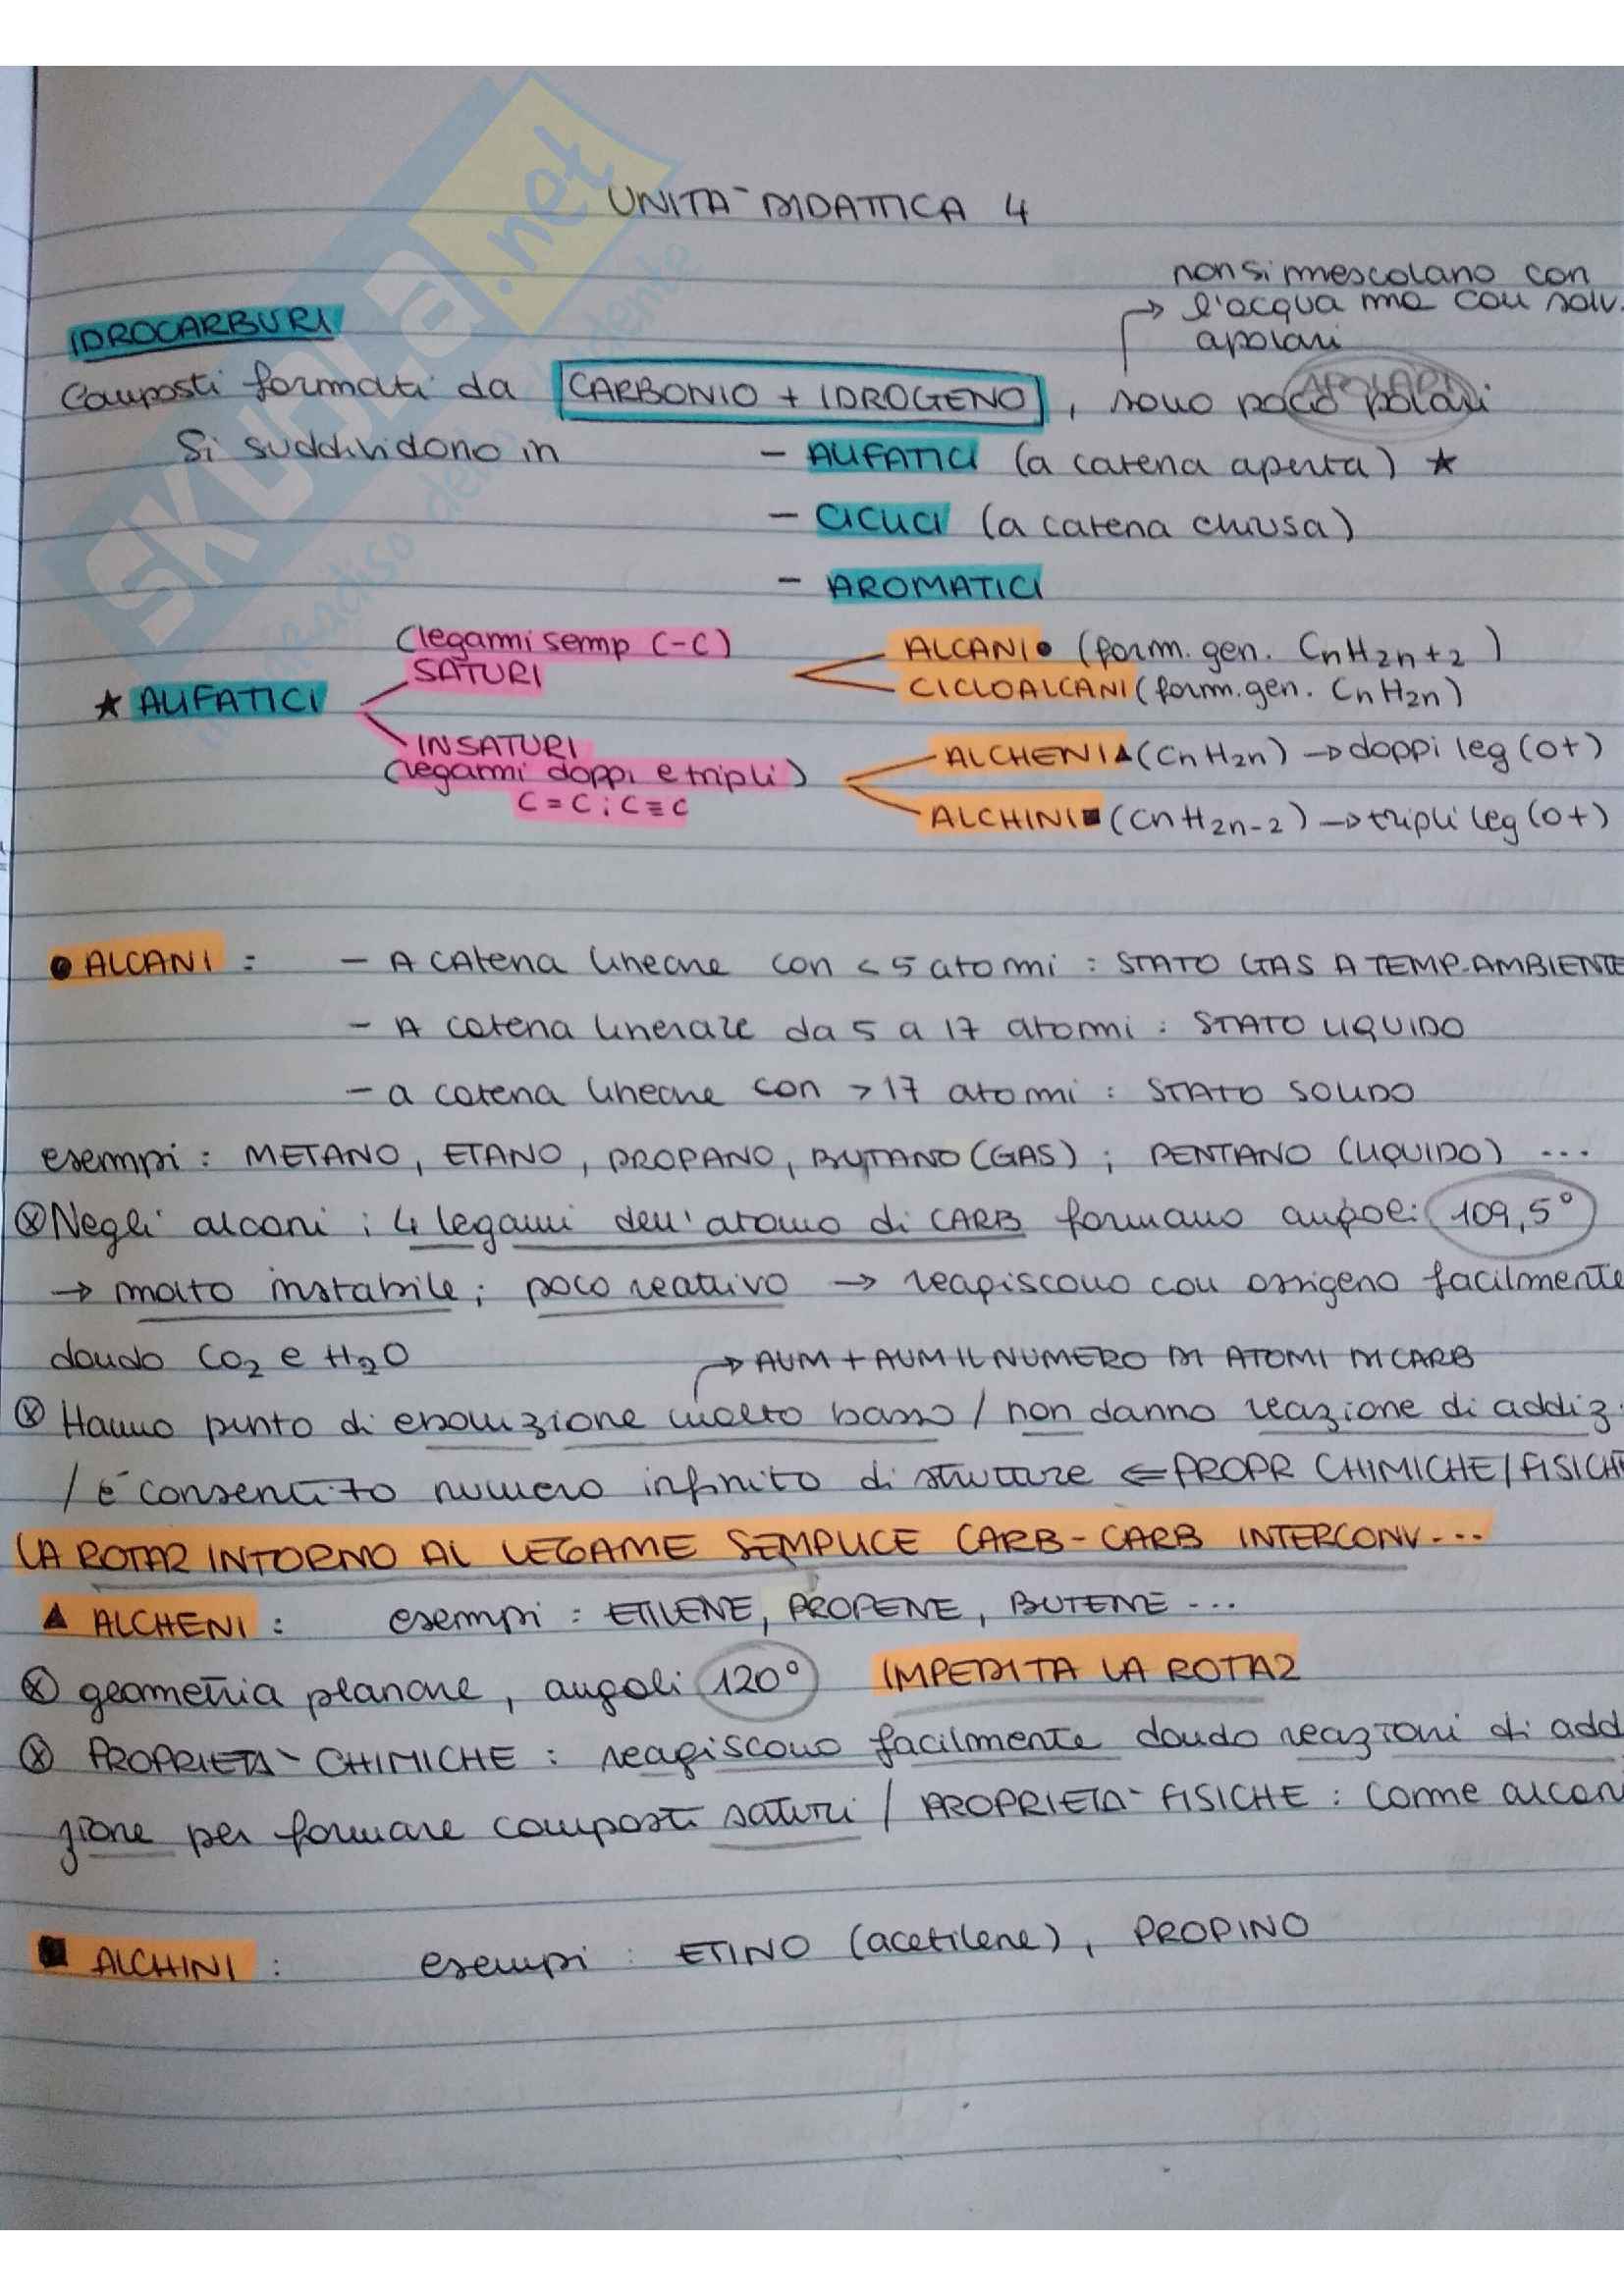 UNITA' DIDATTICA 4
non si mescolano con
→ l'acqua ma con solv.
apolari
IDROCARBURI
Composti formati da CARBONIO + IDROGENO, sono poco polari
APOLARI
Si suddividono in - ALIFATICI (a catena aperta) ★
- CICLICI (a catena chiusa)
- AROMATICI
(legami semp C-C)
SATURI
ALCANI ● (form. gen. CnH2n+2)
CICLOALCANI (form. gen. CnH2n)
★ ALIFATICI
INSATURI
(legami doppi e tripli)
C=C ; C≡C
ALCHENI ▲ (CnH2n) → doppi leg (o+)
ALCHINI ■ (CnH2n-2) → tripli leg (o+)
● ALCANI : - A CAtena lineare con < 5 atomi : STATO GAS A TEMP. AMBIENTE
- A catena linerare da 5 a 17 atomi : STATO LIQUIDO
- a catena lineare con > 17 atomi : STATO SOLIDO
esempi : METANO, ETANO, PROPANO, BUTANO (GAS) ; PENTANO (LIQUIDO) ...
⊗ Negli alcani i 4 legami dell'atomo di CARB formano angoli 109,5°
→ molto instabile ; poco reattivo → reagiscono con ossigeno facilmente
dando CO2 e H2O
→ AUM + AUM IL NUMERO DI ATOMI DI CARB
⊗ Hanno punto di ebollizione molto basso / non danno reazione di addiz.
/ è consentito numero infinito di strutture ⇐ PROPR CHIMICHE/FISICHE
LA ROTAZ INTORNO AL LEGAME SEMPLICE CARB-CARB INTERCONV...
▲ ALCHENI : esempi : ETILENE, PROPENE, BUTENE ...
⊗ geometria planare, angoli 120° IMPEDITA LA ROTAZ
⊗ PROPRIETA' CHIMICHE : reagiscono facilmente dando reazioni di add
zione per formare composti saturi / PROPRIETA' FISICHE : come alcani
■ ALCHINI : esempi : ETINO (acetilene), PROPINO
SKUOLA.net